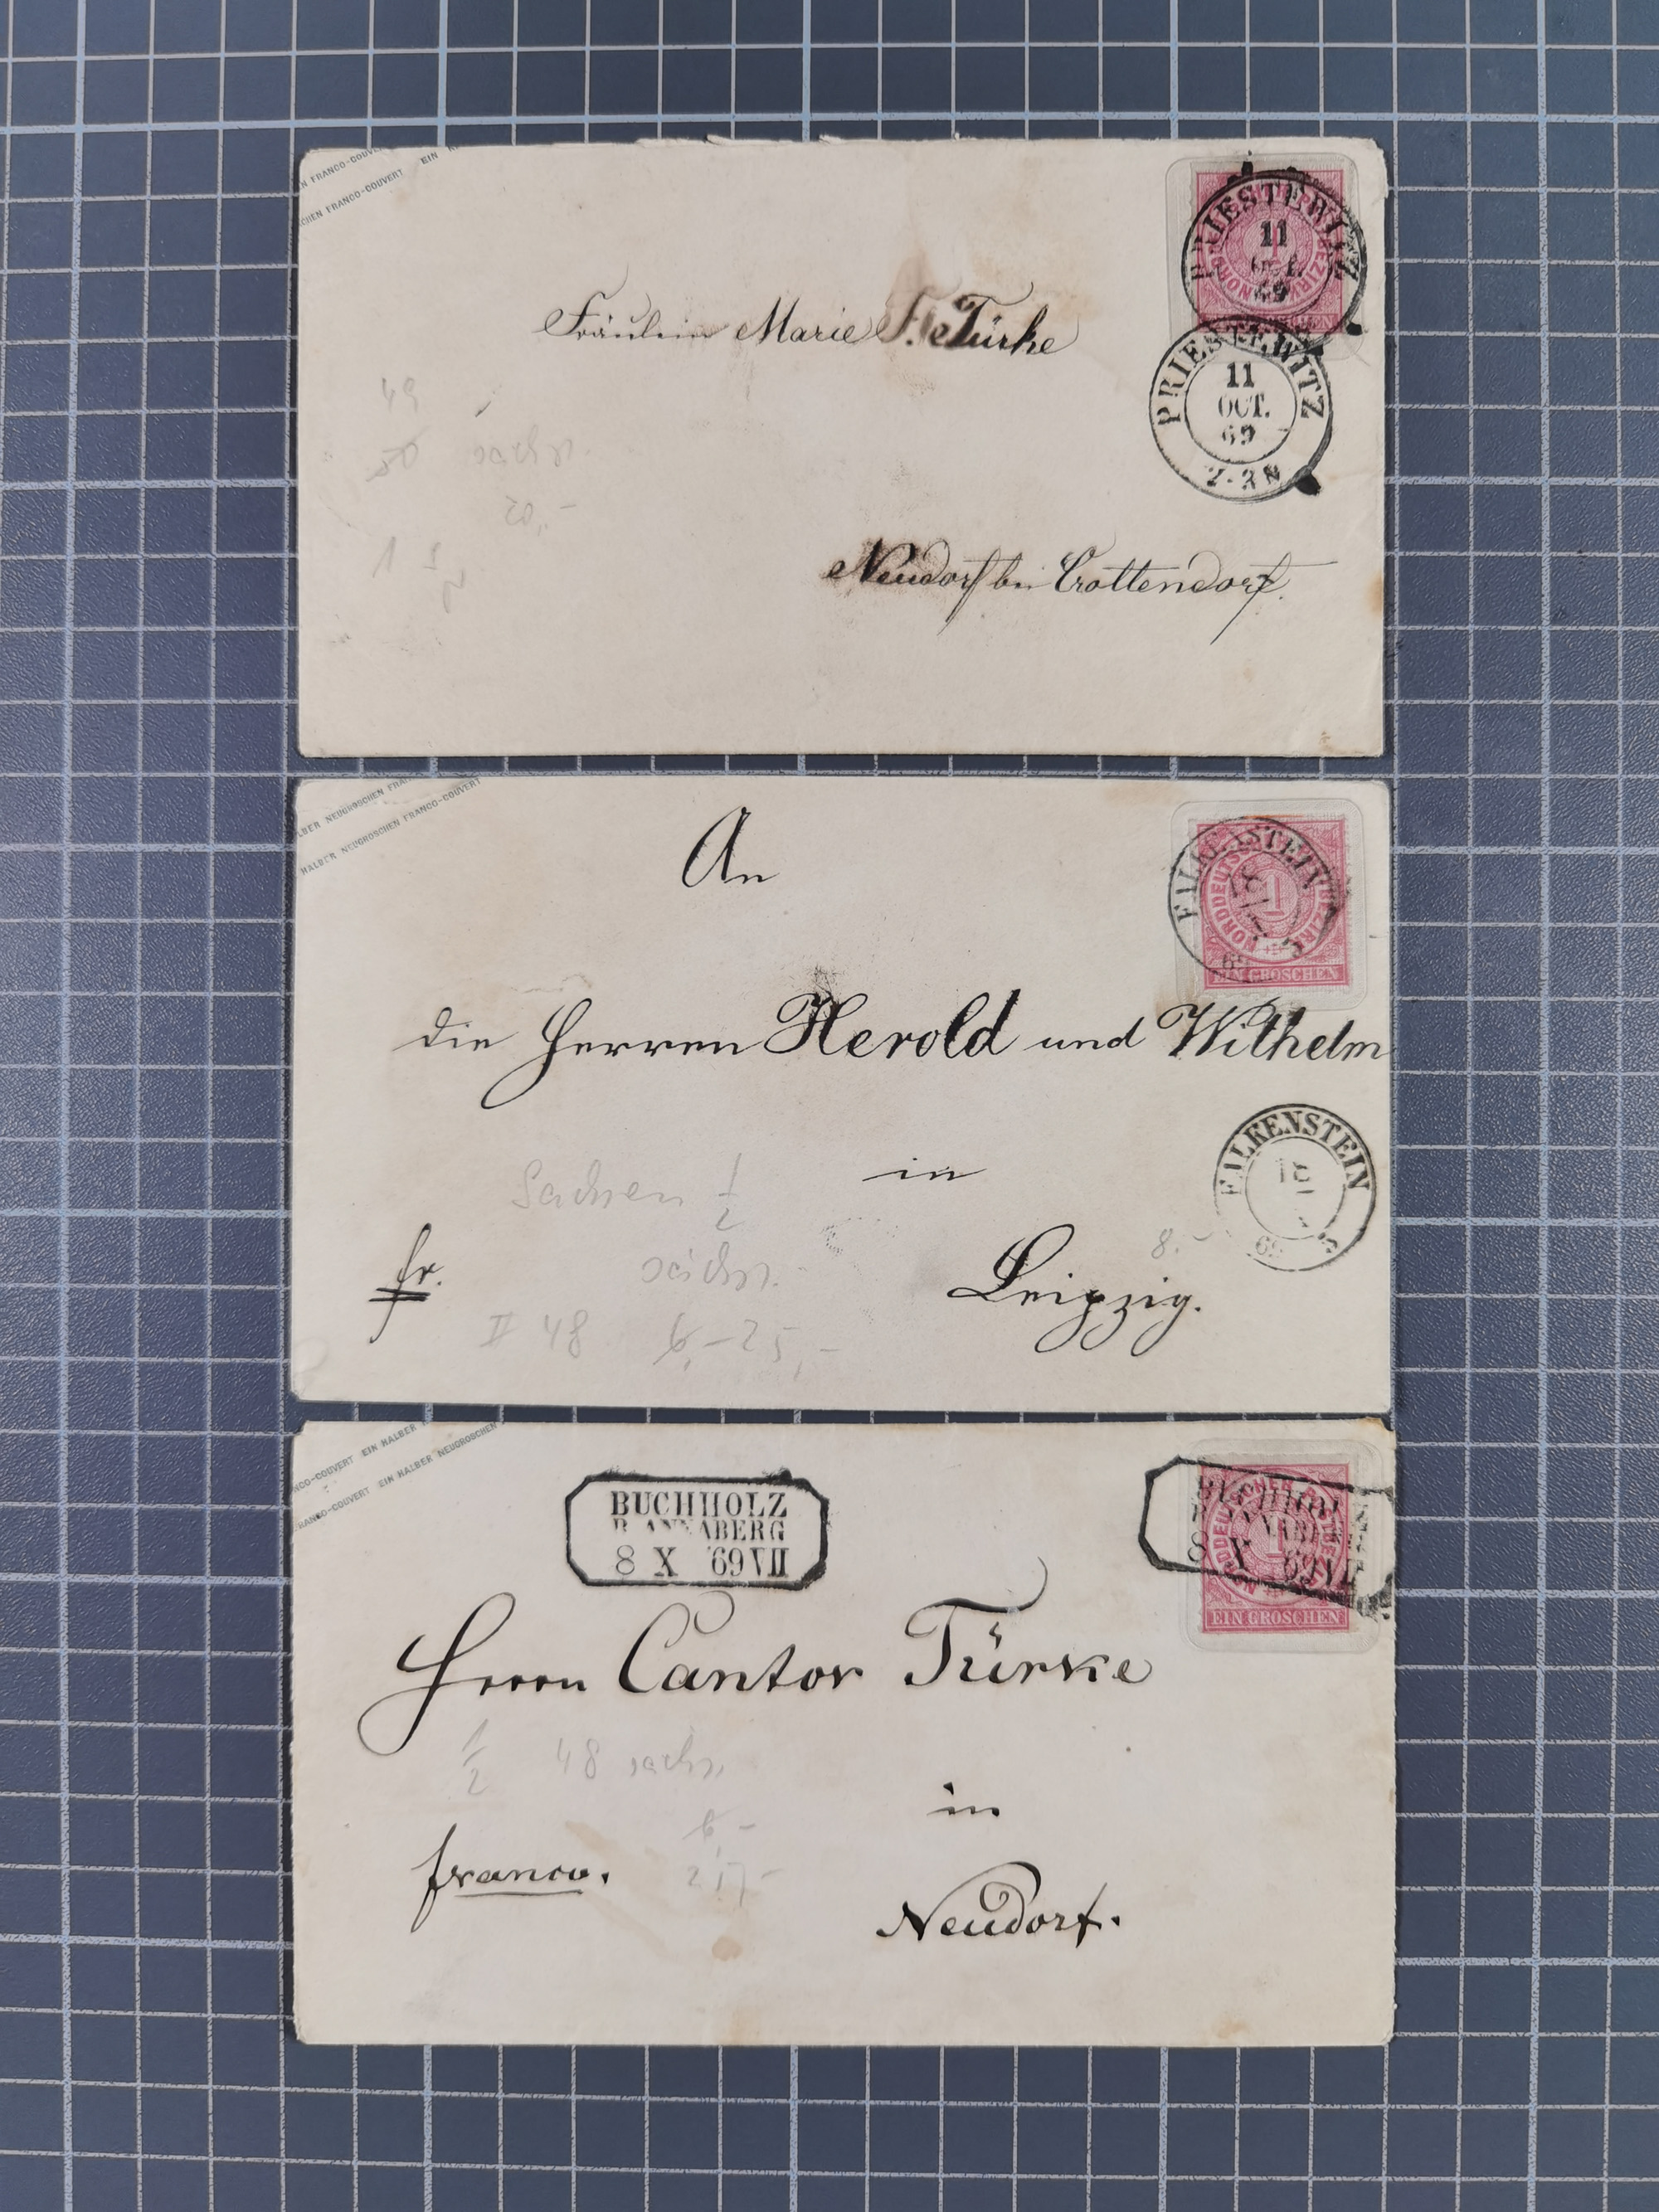 FRANCO-COUVERT
SCHEN FRANCO-COUVERT EIN
PRIESTEWITZ
11
OCT.
69
Fräulein Marie Türke
PRIESTEWITZ
11
OCT.
69
2-3N
49
50 sächs.
20,-
Neudorf bei Crottendorf.
HALBER NEUGROSCHEN FRANCO
HALBER NEUGROSCHEN FRANCO-COUVERT
An
FALKENSTEIN
18
69
NORDDEUTSCHER POSTBEZIRK
1
EIN GROSCHEN
die Herren Herold und Wilhelm
FALKENSTEIN
18
69
in
Sachsen 1/2
sächs.
fr.
8.-
Leipzig.
II 48 6,- 25,-
FRANCO-COUVERT EIN HALBER
FRANCO-COUVERT EIN HALBER NEUGROSCHEN
BUCHHOLZ
B. ANNABERG
8 X 69 VII
BUCHHOLZ
8 X 69 VII
1
EIN GROSCHEN
Herrn Cantor Türke
1/2 48 sächs.
in
6,-
franco.
Neudorf.